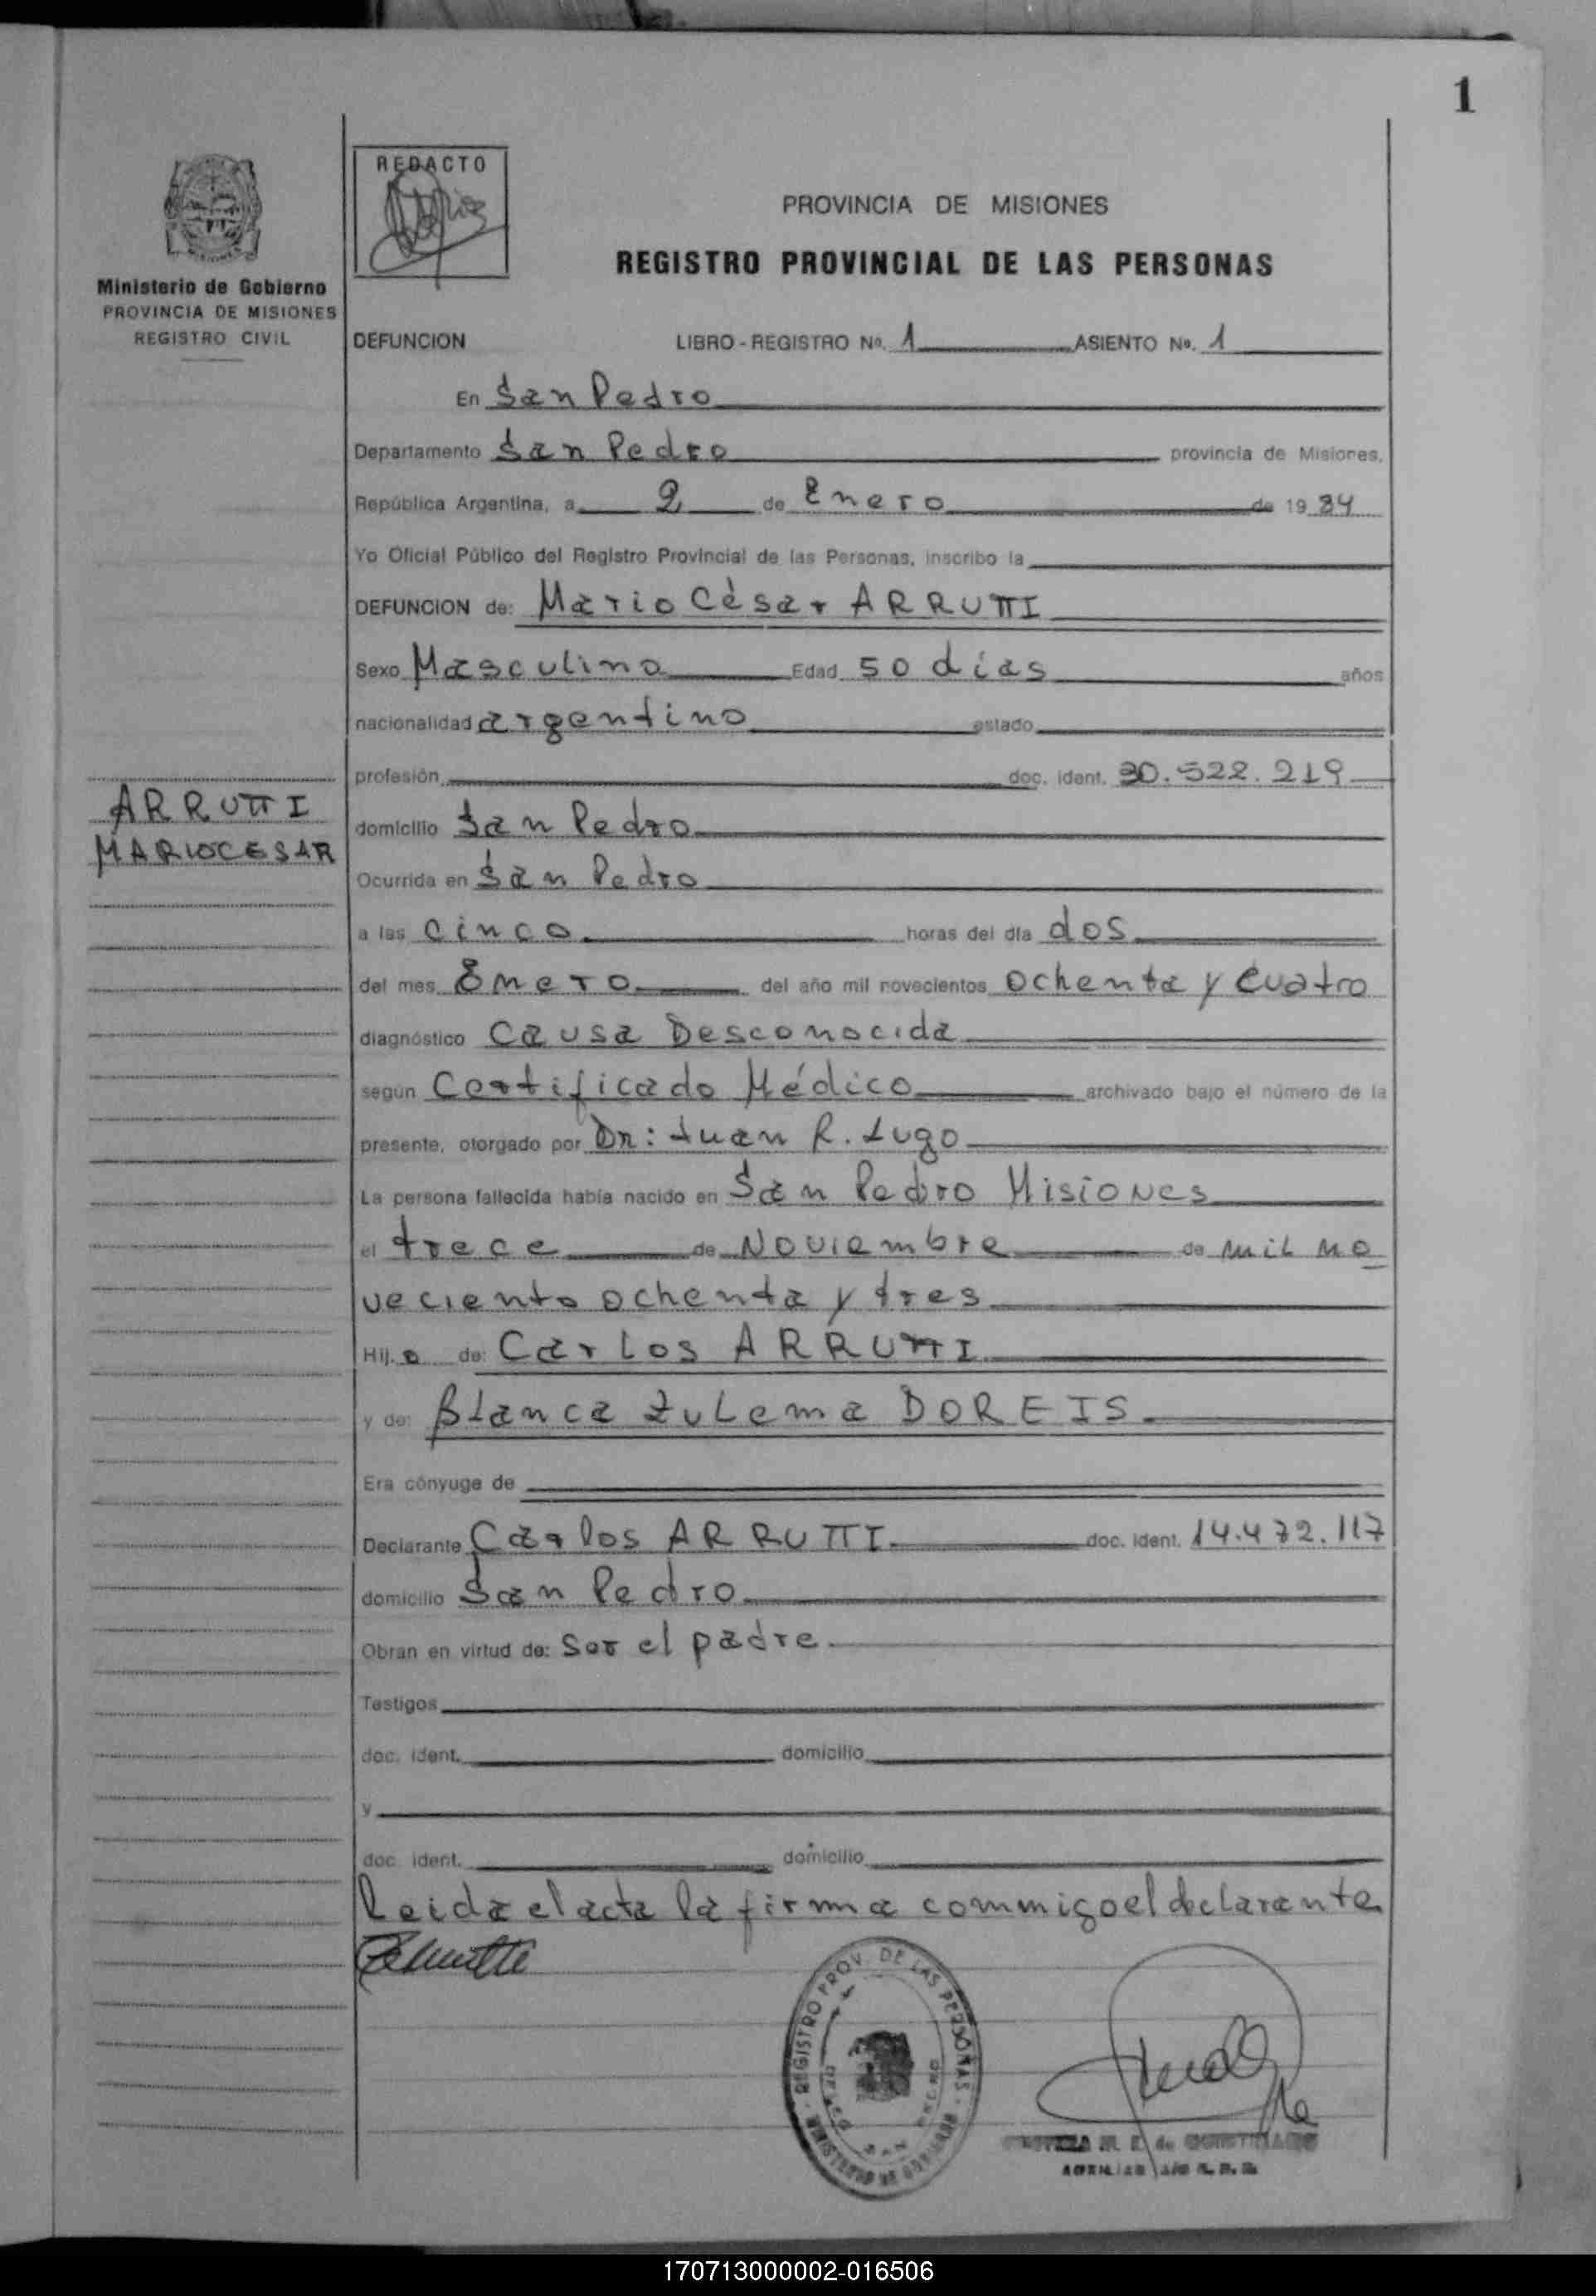 1
REDACTO
PROVINCIA DE MISIONES
REGISTRO PROVINCIAL DE LAS PERSONAS
Ministerio de Gobierno
PROVINCIA DE MISIONES
REGISTRO CIVIL
DEFUNCION LIBRO - REGISTRO No. 1 ASIENTO No. 1
En San Pedro
Departamento San Pedro provincia de Misiones,
República Argentina, a 2 de Enero de 1984
Yo Oficial Público del Registro Provincial de las Personas, inscribo la
DEFUNCION de: Mario Cèsar ARRUTTI
Sexo Masculino Edad 50 días años
nacionalidad argentino estado
profesión doc. ident. 30.522.219
ARRUTTI
MARIO CESAR
domicilio San Pedro
Ocurrida en San Pedro
a las cinco horas del día dos
del mes Enero del año mil novecientos ochenta y cuatro
diagnóstico Causa Desconocida
según Certificado Médico archivado bajo el número de la
presente, otorgado por Dr: Juan R. Lugo
La persona fallecida había nacido en San Pedro Misiones
el trece de Noviembre de mil no
veciento ochenta y tres
Hijo de: Carlos ARRUTTI
y de: Blanca Zulema DOREIS
Era cónyuge de
Declarante Carlos ARRUTTI doc. ident. 14.472.117
domicilio San Pedro
Obran en virtud de: Ser el padre
Testigos
doc. ident. domicilio
y
doc. ident. domicilio
Leida el acta la firma commigo el declarante
REGISTRO PROV. DE LAS PERSONAS
MINISTERIO DE GOBIERNO
170713000002-016506